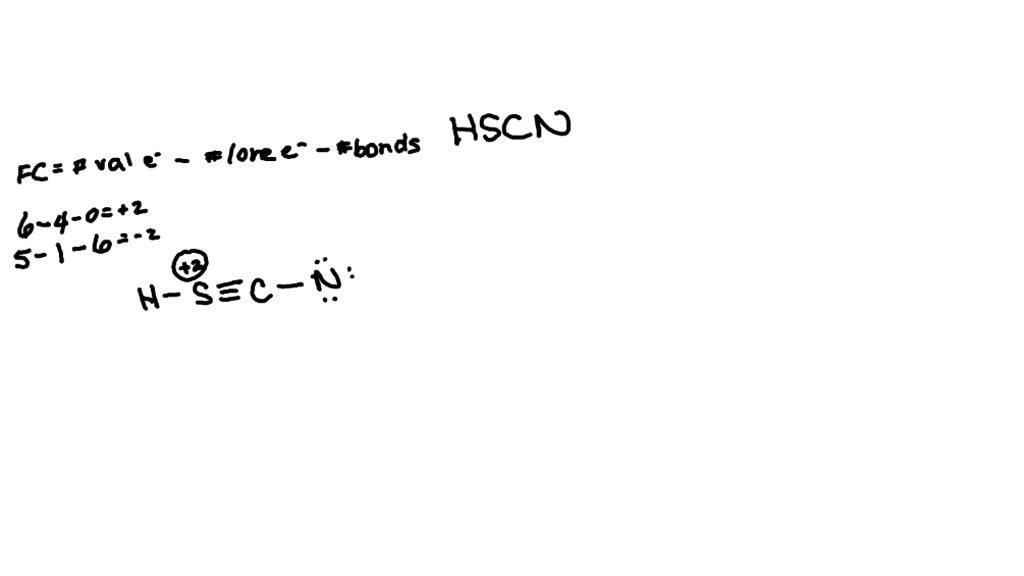 HSCN
FC = # val e⁻ - # lone e⁻ - # bonds
6-4-0=+2
5-1-6=-2
+2
H-S≡C-N: